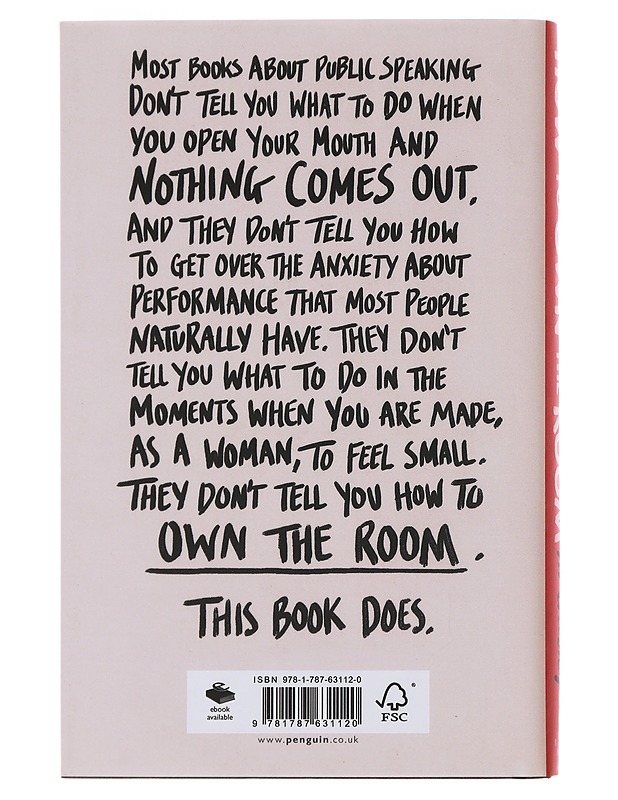 MOST BOOKS ABOUT PUBLIC SPEAKING
DON'T TELL YOU WHAT TO DO WHEN
YOU OPEN YOUR MOUTH AND
NOTHING COMES OUT.
AND THEY DON'T TELL YOU HOW
TO GET OVER THE ANXIETY ABOUT
PERFORMANCE THAT MOST PEOPLE
NATURALLY HAVE. THEY DON'T
TELL YOU WHAT TO DO IN THE
MOMENTS WHEN YOU ARE MADE,
AS A WOMAN, TO FEEL SMALL.
THEY DON'T TELL YOU HOW TO
OWN THE ROOM.
THIS BOOK DOES.
ISBN 978-1-787-63112-0
ebook
available
9 781787 631120
FSC
®
www.penguin.co.uk
THE ROOM